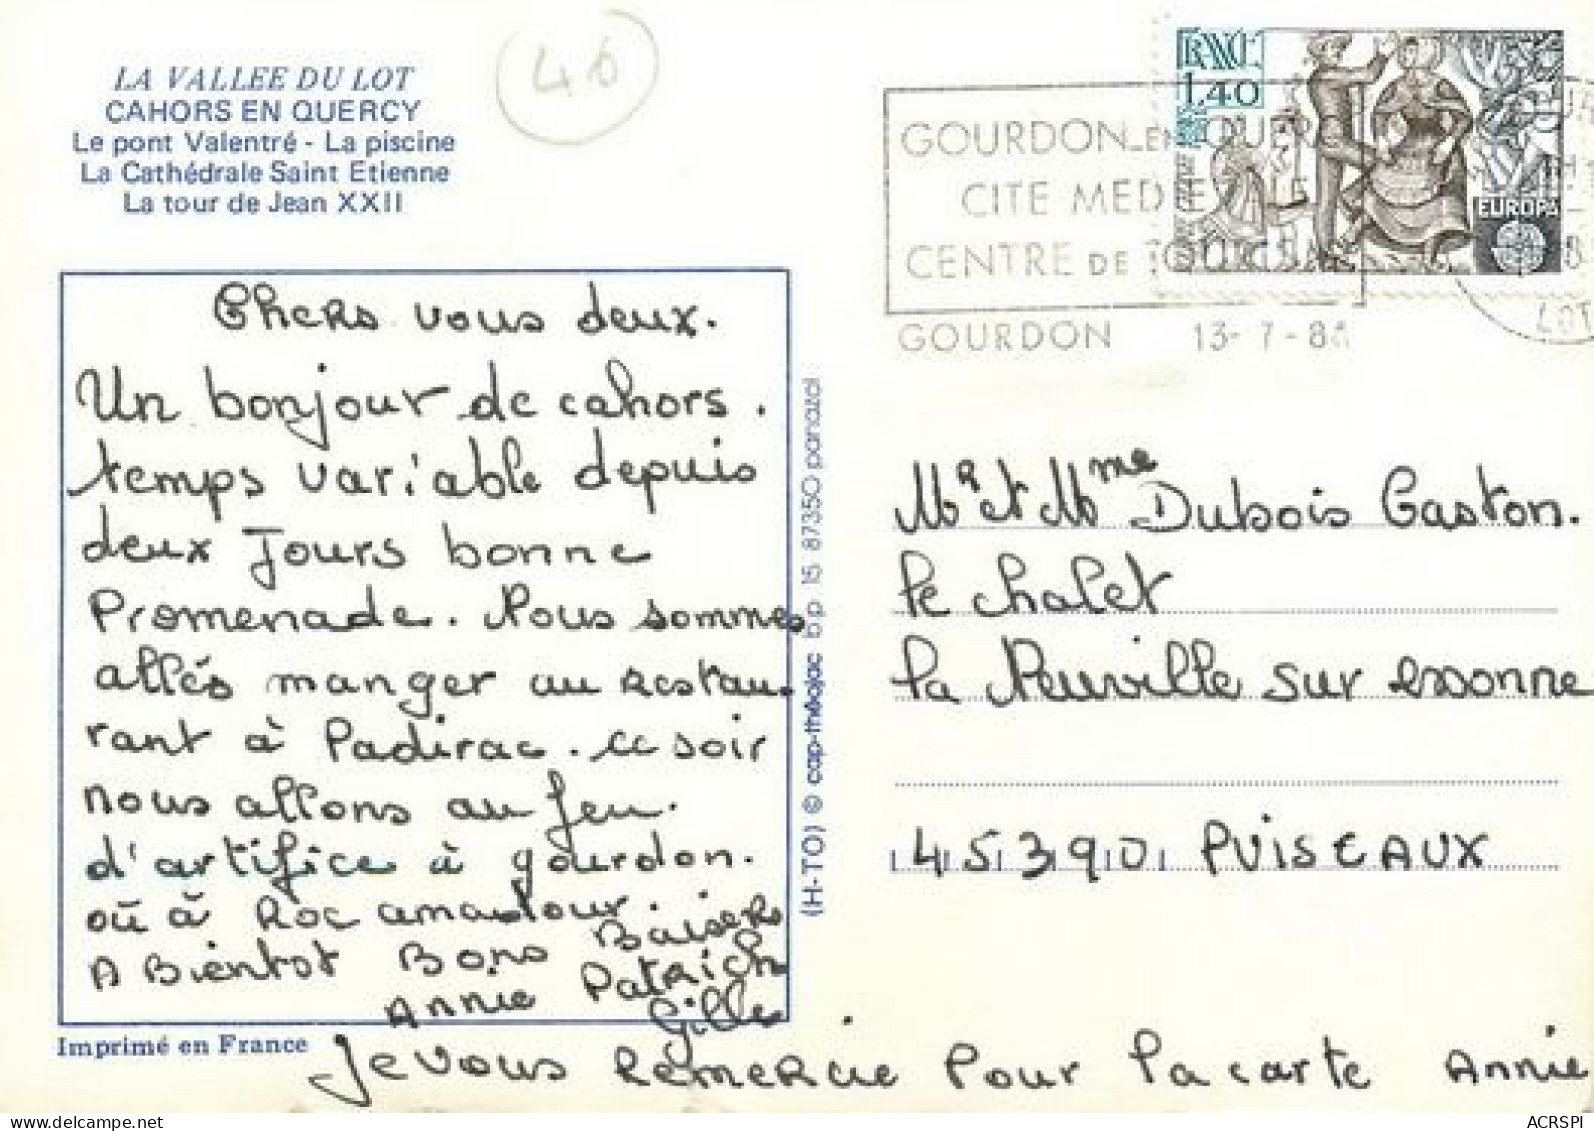 LA VALLEE DU LOT
CAHORS EN QUERCY
Le pont Valentré - La piscine
La Cathédrale Saint Etienne
La tour de Jean XXII
46
FRANCE
1,40
EUROPA
GOURDON EN QUERCY
CITE MEDIEVALE
CENTRE DE TOURISME
GOURDON 13-7-8
LOT
Chers vous deux.
Un bonjour de cahors.
temps variable depuis
deux Jours bonne
Promenade. Nous sommes
allés manger au restau-
rant à Padirac. ce soir
nous allons au feu.
d'artifice à gourdon.
où à Roc amadour.
A Bientot Bons Baisers
Annie Patrick
Gilles
Je vous Remercie Pour la carte Annie
Imprimé en France
(H-TO) © cap-théojac b.p. 15 87350 panazol
Mr et Mme Dubois Gaston.
le chalet
la Neuville sur essonne
45390 PUISEAUX
ACRSPI